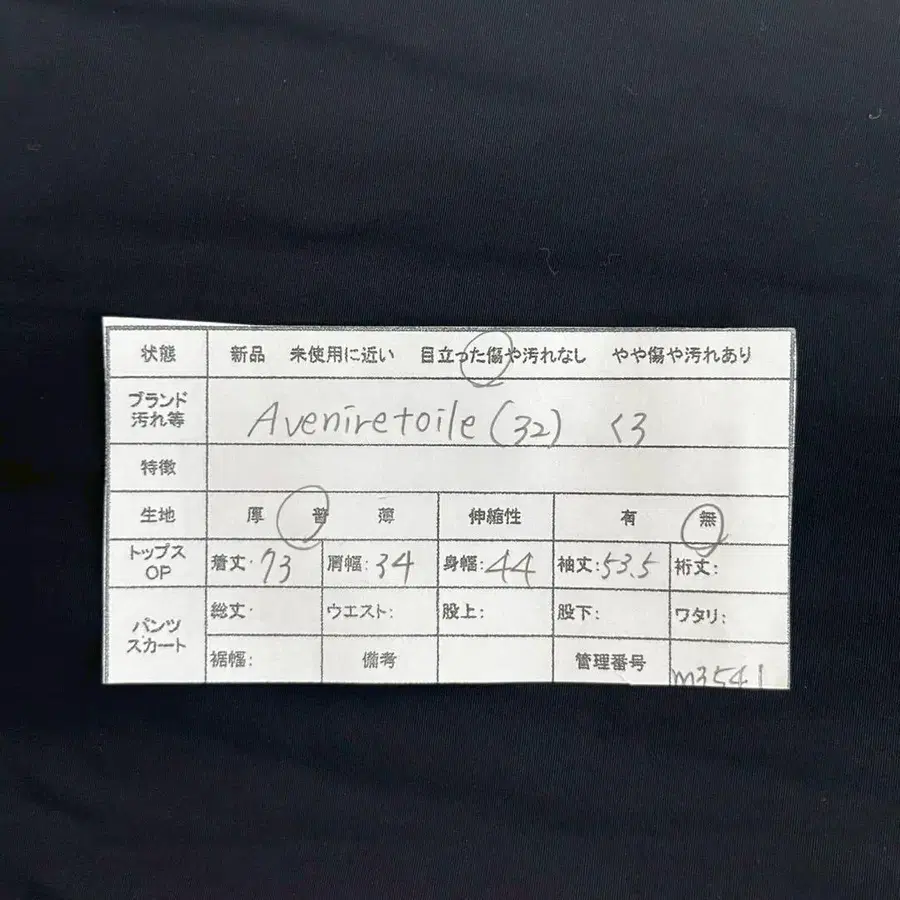 状態 新品 未使用に近い 目立った傷や汚れなし やや傷や汚れあり
ブランド
汚れ等
Aveniretoile (32) く3
特徴
生地 厚 普 薄 伸縮性 有 無
トップス
OP
着丈:73 肩幅:34 身幅:44 袖丈:53.5 裄丈:
パンツ
スカート
総丈: ウエスト: 股上: 股下: ワタリ:
裾幅: 備考 管理番号 m3541